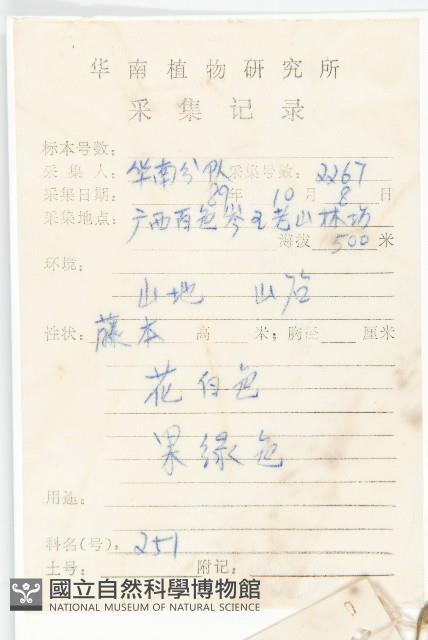 华南植物研究所
采集记录
标本号数：
采集人：华南分队 采集号数：2267
采集日期：89年10月8日
采集地点：广西百色岑王老山林场
海拔 500 米
环境：
山地 山沿
性状：藤本 高 米；胸径 厘米
花白色
果绿色
用途：
科名(号)：251
土号： 附记：
國立自然科學博物館
NATIONAL MUSEUM OF NATURAL SCIENCE